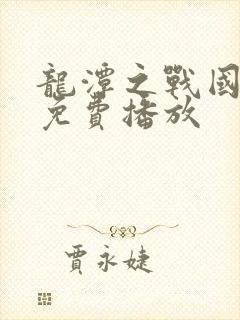 龍潭之戰國
免費播放
賈永婕